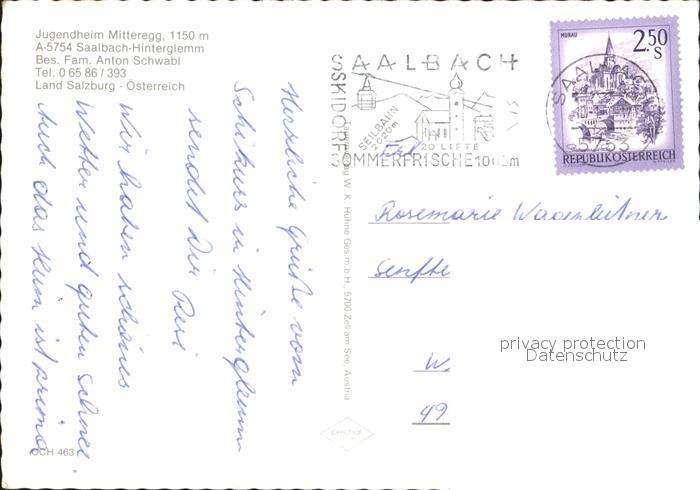 Jugendheim Mitteregg, 1150 m
A-5754 Saalbach-Hinterglemm
Bes. Fam. Anton Schwabl
Tel. 0 65 86 / 393
Land Salzburg - Österreich
Herzliche Grüße vom
Schikurs in Hinterglemm
sendet Dir Resi
Wir haben schönes
Wetter und guten Schnee.
Auch das Heim ist prima
OCH 463
W. K. Hühne Ges.m.b.H., 5700 Zell am See, Austria
SAALBACH
SKIDORF
SEILBAHN
2020m
20 LIFTE
SOMMERFRISCHE
MURAU
2.50
S
REPUBLIK ÖSTERREICH
SAALBACH
5753
Frl.
Rosemarie Wagenleitner
Senfte
W.
49
privacy protection
Datenschutz